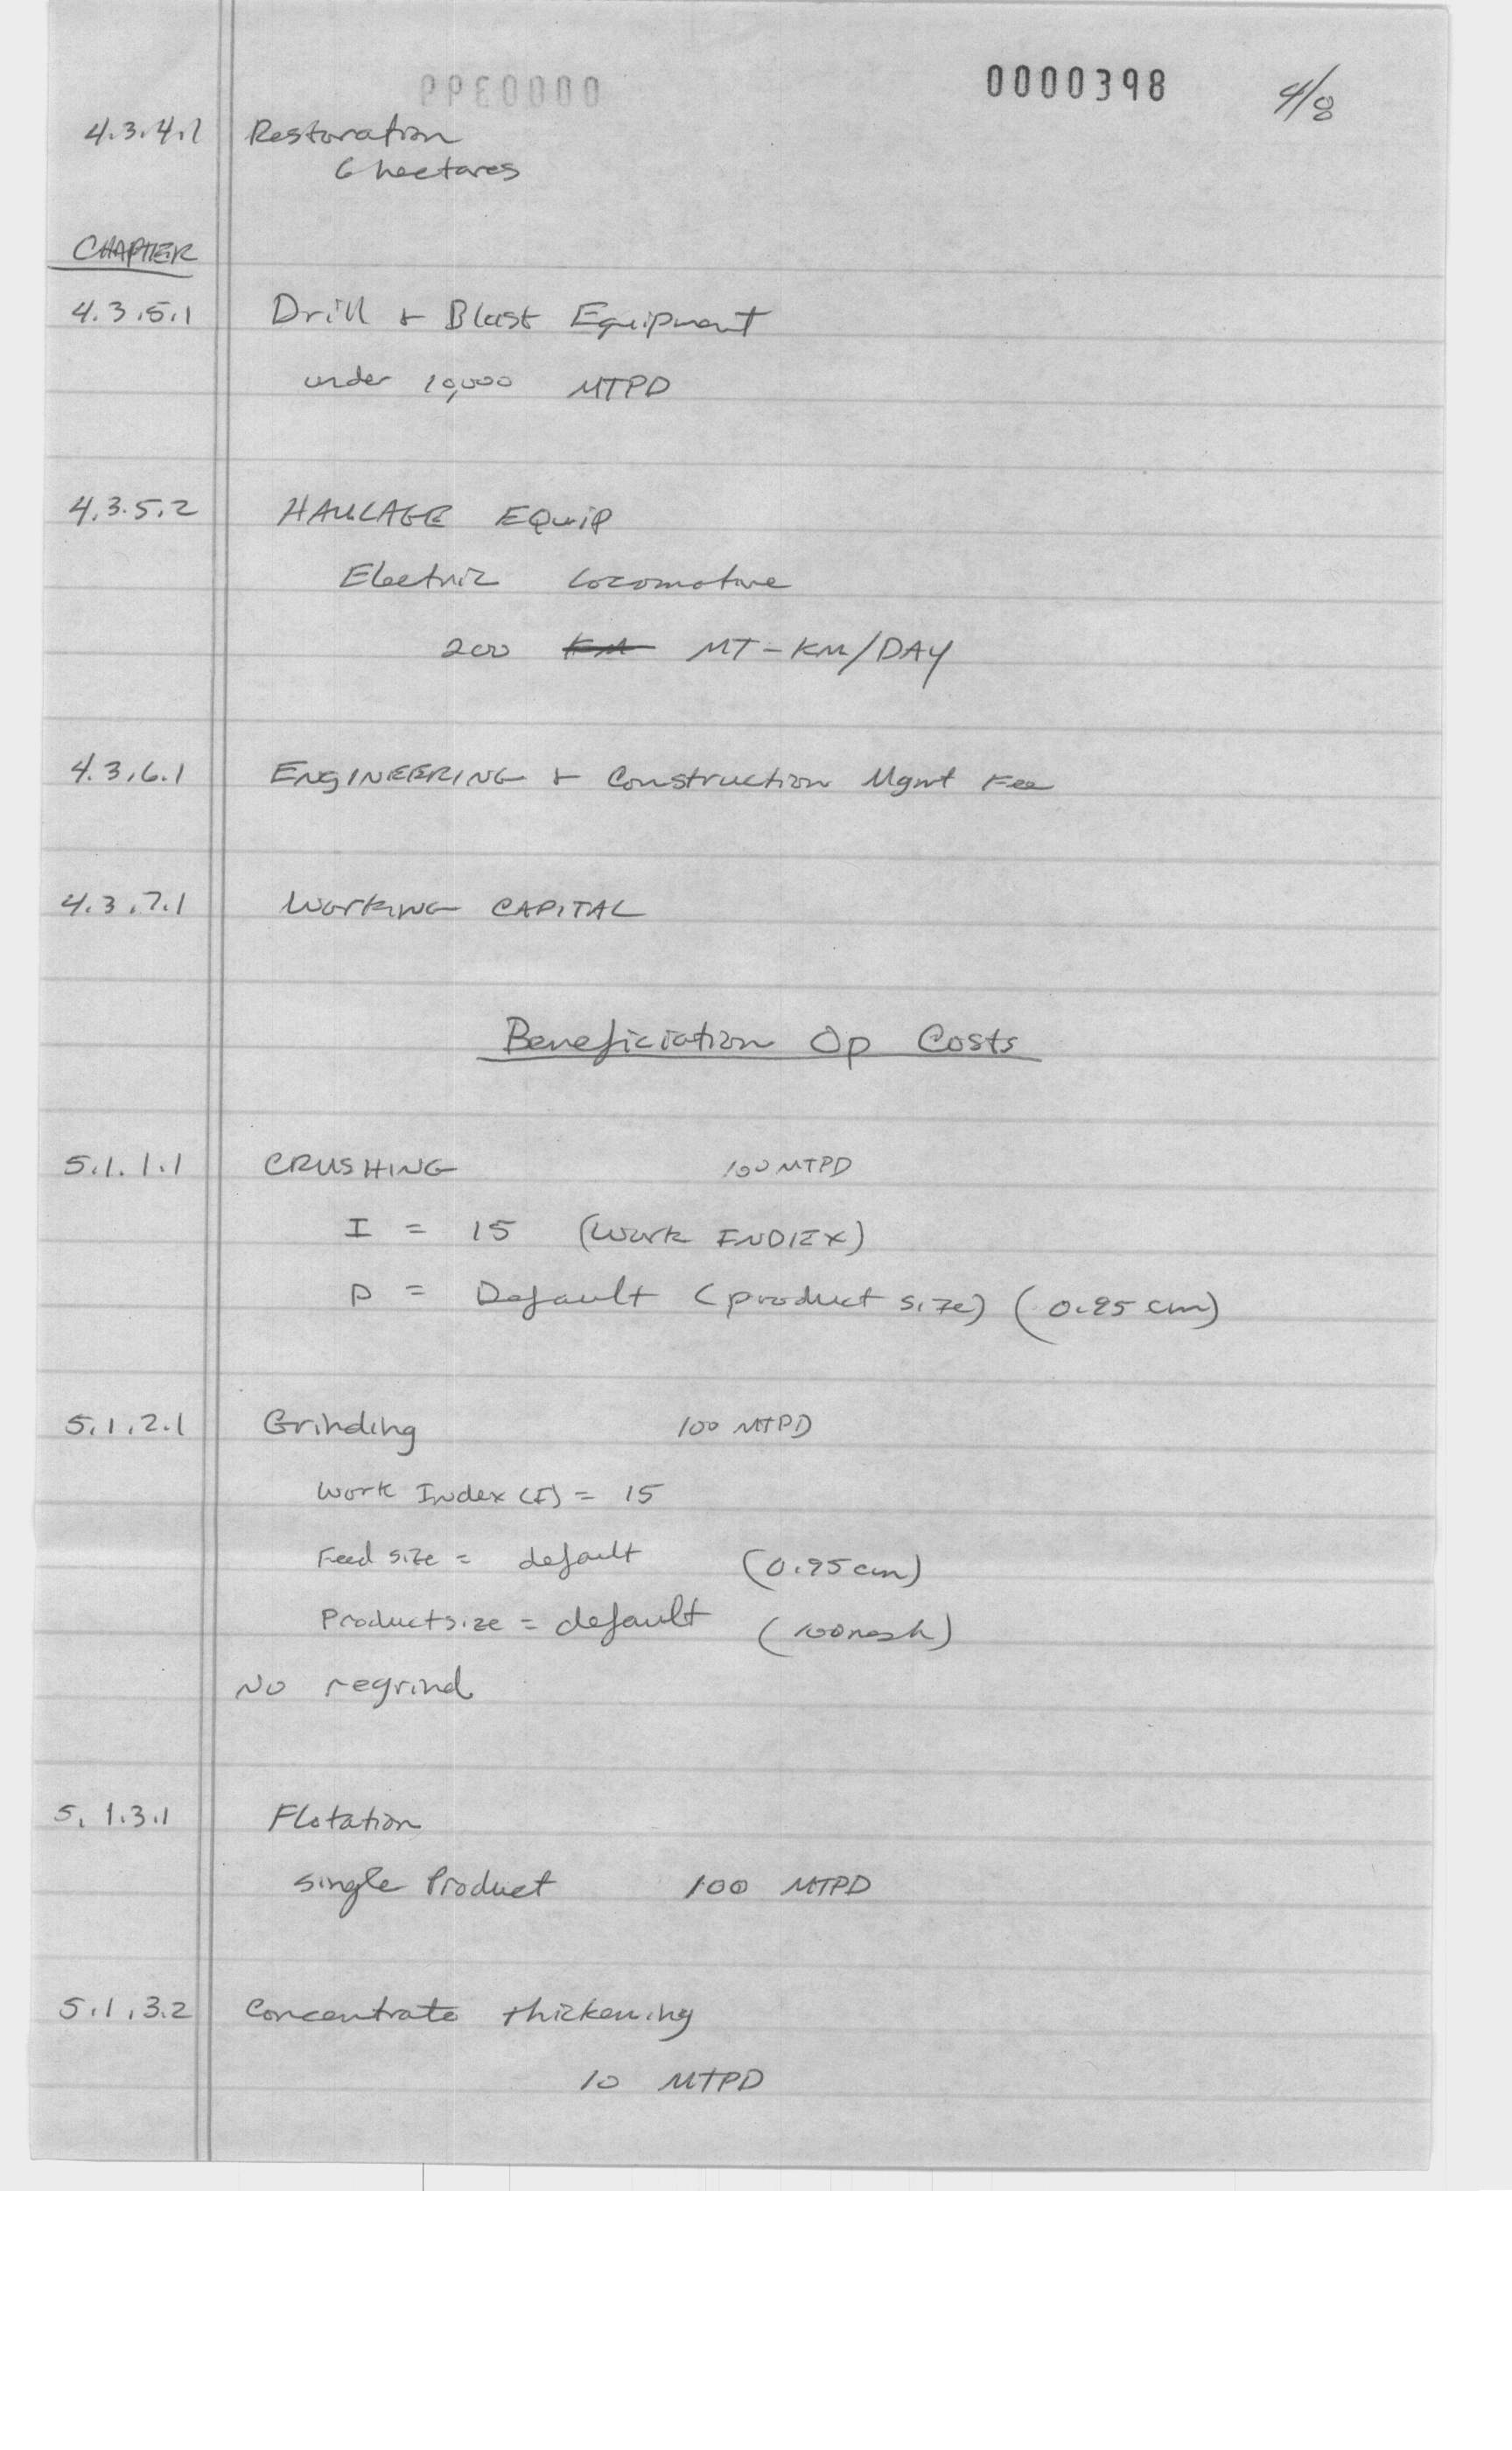 0000398 4/8
4.3.4.1 Restoration
6 hectares
CHAPTER
4.3.5.1 Drill + Blast Equipment
under 10,000 MTPD
4.3.5.2 HAULAGE EQuip
Electric Locomotive
200 KM MT-KM/DAY
4.3.6.1 ENGINEERING + Construction Mgmt Fee
4.3.7.1 WORKING CAPITAL
Beneficiation Op Costs
5.1.1.1 CRUSHING 100 MTPD
I = 15 (Work INDEX)
P = Default (product size) (0.95 cm)
5.1.2.1 Grinding 100 MTPD
Work Index (I) = 15
Feed size = default (0.95 cm)
Product size = default (100 mesh)
No regrind
5.1.3.1 Flotation
single Product 100 MTPD
5.1.3.2 Concentrate thickening
10 MTPD